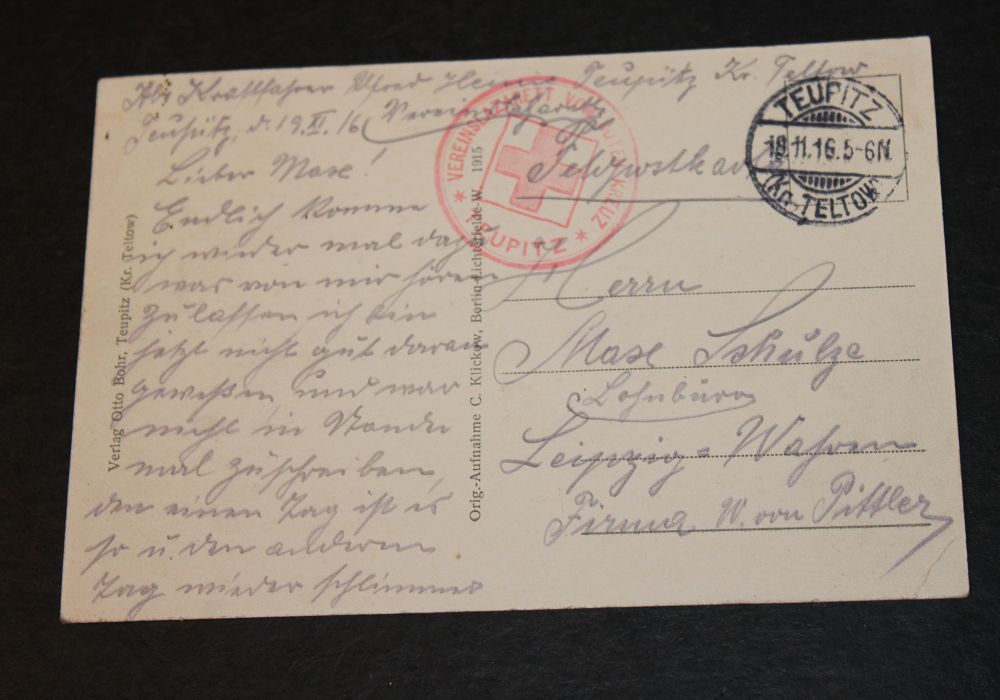 Abs Kraftfahrer Alfred Heinze Teupitz Kr. Teltow
Teupitz, d. 19.XI.16. Vereinslazarett
Lieber Maxe!
Endlich komme
ich wieder mal dazu
was von mir hören
zulassen ich bin
jetzt nicht gut daran
geweßen und war
nicht in Stande
mal zuschreiben,
den einen Tag ist es
so u. den anderen
Tag wieder schlimmer
Feldpostkarte
Herrn
Maxe Schulze
Lohnbüro
Leipzig-Wahren
Firma W. von Pittler
VEREINSLAZARETT VOM ROTEN KREUZ
* TEUPITZ *
TEUPITZ
18.11.16.5-6N.
(Kr. TELTOW)
Verlag Otto Bohr, Teupitz (Kr. Teltow)
Orig.-Aufnahme C. Klickow, Berlin-Lichterfelde-W. 1915